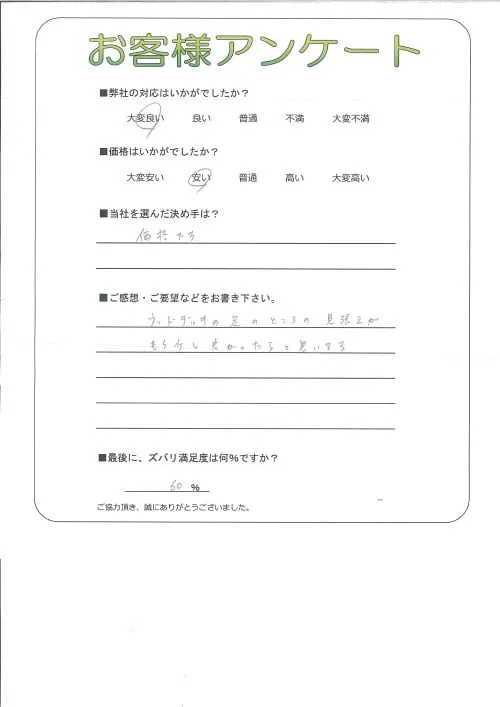 お客様アンケート
■弊社の対応はいかがでしたか？
大変良い 良い 普通 不満 大変不満
■価格はいかがでしたか？
大変安い 安い 普通 高い 大変高い
■当社を選んだ決め手は？
価格です
■ご感想・ご要望などをお書き下さい。
ウッドデッキの足のところの見張えが
もう少し良かったらと思いする
■最後に、ズバリ満足度は何%ですか？
60 %
ご協力頂き、誠にありがとうございました。